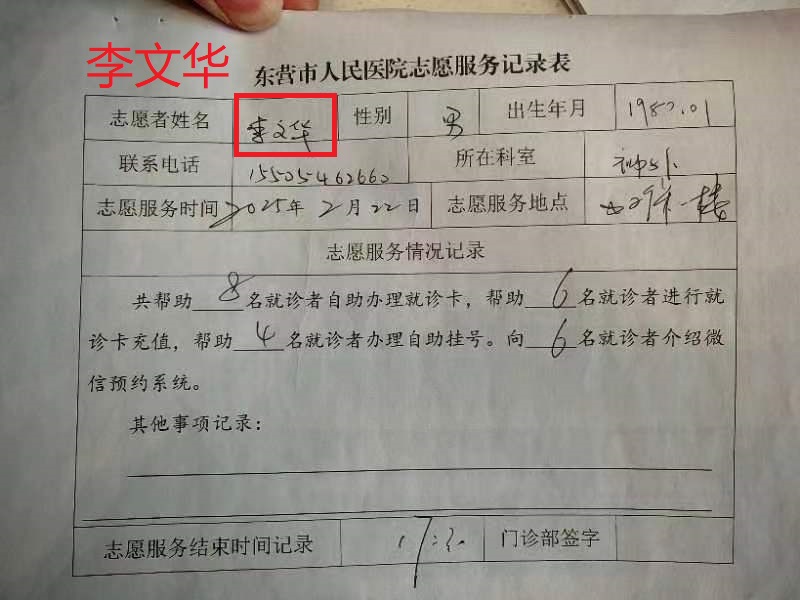 李文华
东营市人民医院志愿服务记录表
志愿者姓名 李文华 性别 男 出生年月 1987.01
联系电话 15505462660 所在科室 神外
志愿服务时间 2025年2月22日 志愿服务地点 门诊一楼
志愿服务情况记录
共帮助8名就诊者自助办理就诊卡，帮助6名就诊者进行就
诊卡充值，帮助4名就诊者办理自助挂号。向6名就诊者介绍微
信预约系统。
其他事项记录：
志愿服务结束时间记录 门诊部签字